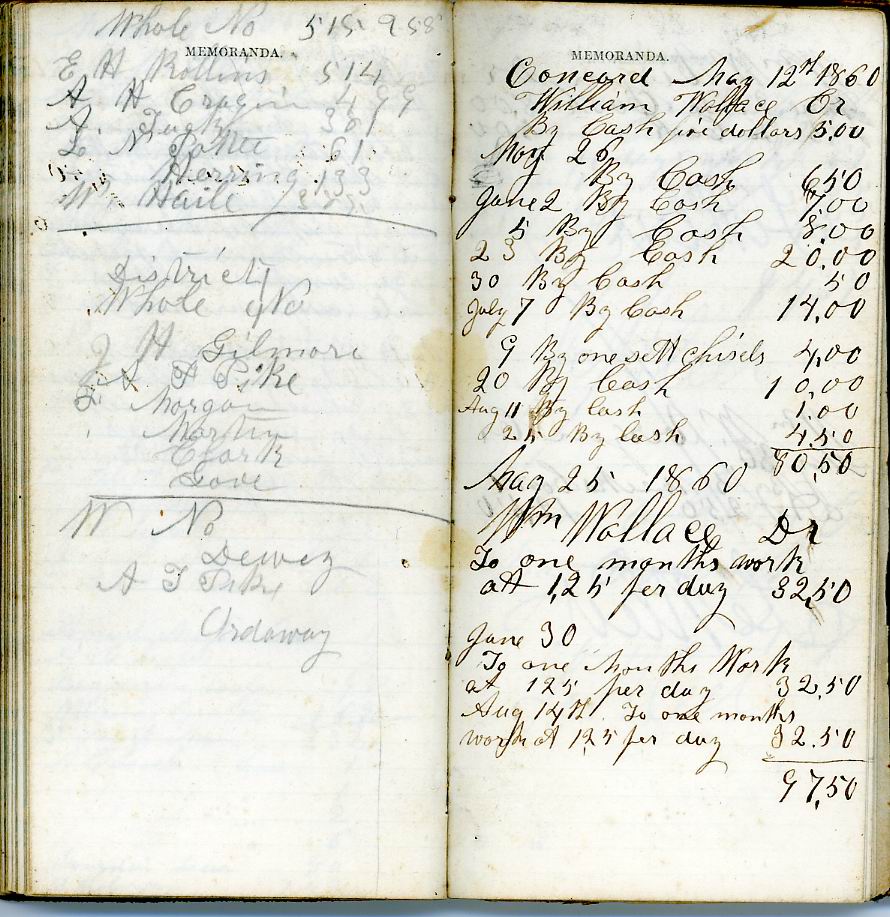 Whole No 515 958
MEMORANDA.
E H Rollins 514
A H Cragin 499
A. Tuck 381
L N 61
Herring 133
Wm Haile
District
Whole No
J H Gilmore
A T Pike
Morgan
Martin
Clark
Love
W No
Dewey
A T Pike
Ordaway
MEMORANDA.
Concord May 12th 1860
William Wallace Cr
By Cash five dollars 5.00
May 26
By Cash 6 50
June 2 By Cash 7,00
5 By Cash 8,00
23 By Cash 20,00
30 By Cash 50
July 7 By Cash 14,00
9 By one sett chisels 4,00
20 By Cash 10,00
Aug 11 By Cash 1.00
25 By Cash 4.50
80,50
May 25 1860
Wm Wallace Dr
To one months work
att 1,25 per day 32,50
June 30
To one Months Work
at 125 per day 32.50
Aug 14th. To one months
work at 125 per day 32.50
97,50